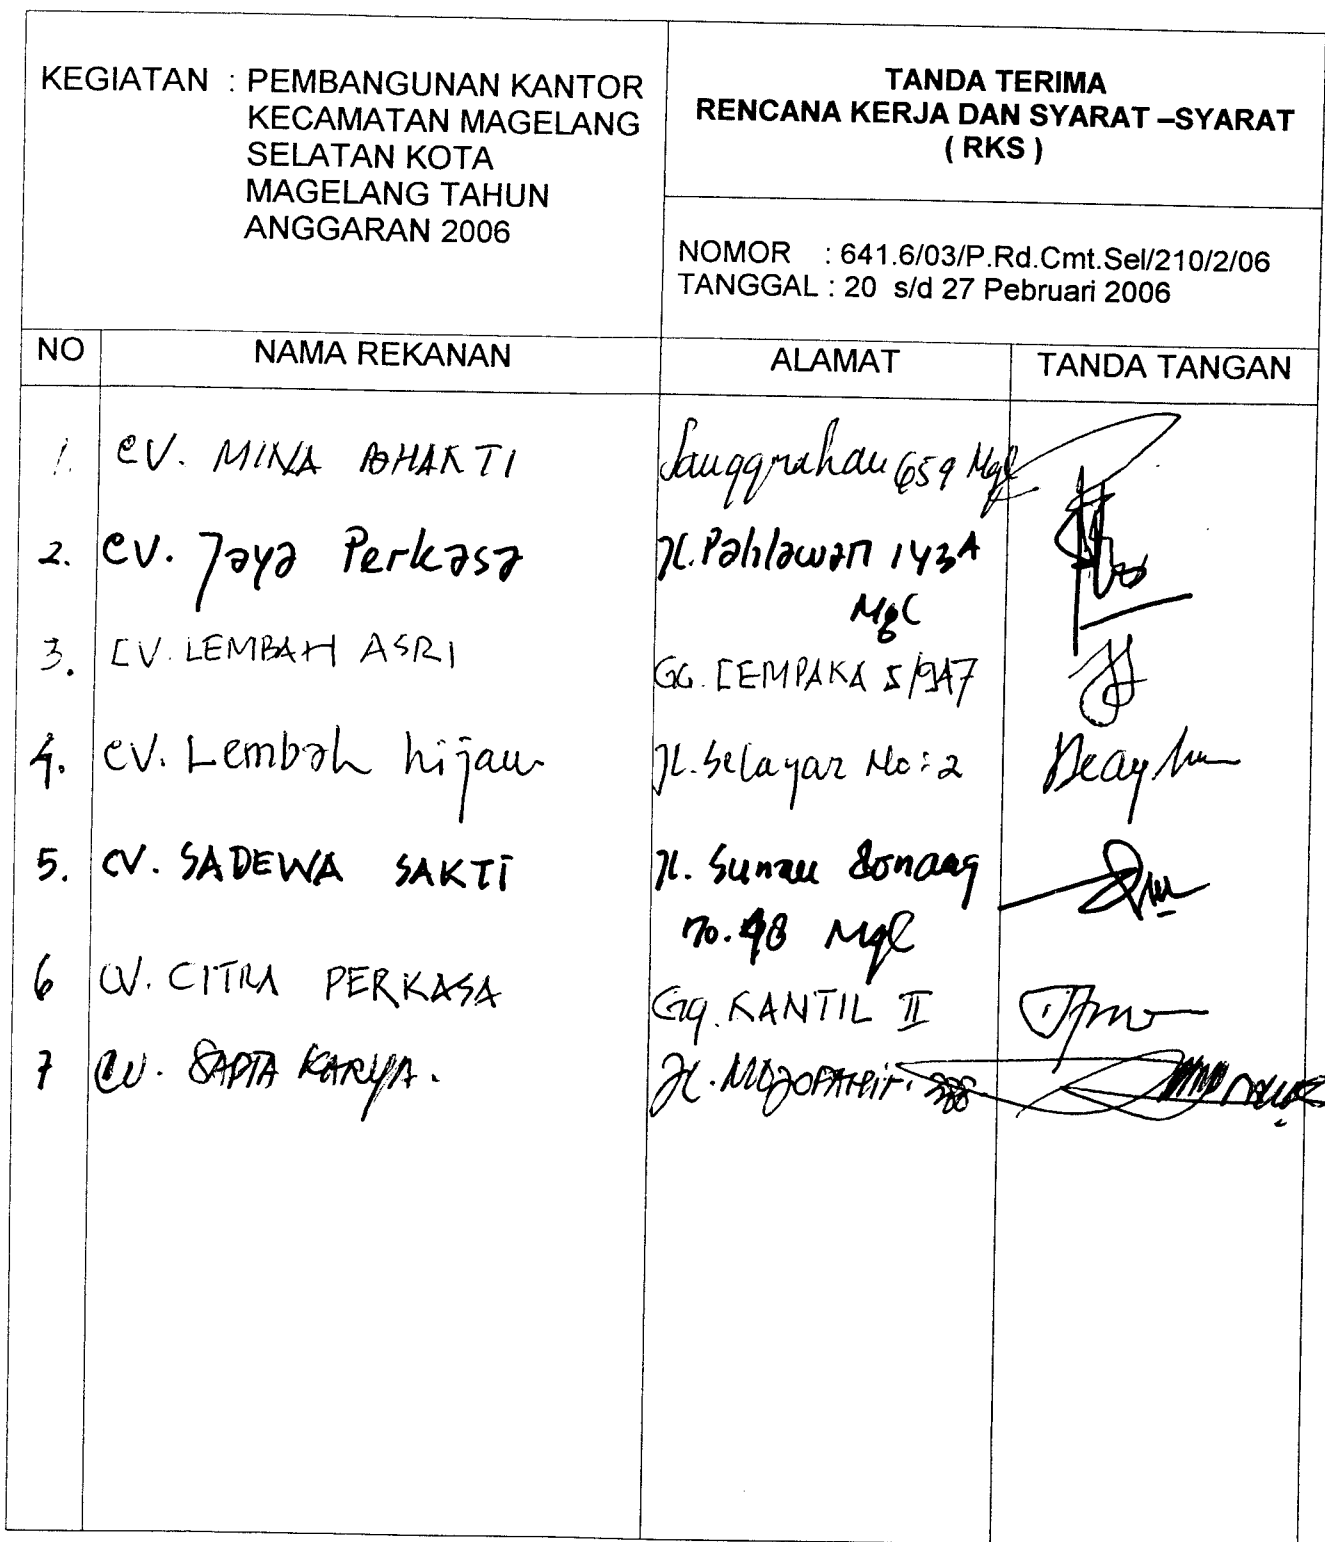 KEGIATAN : PEMBANGUNAN KANTOR
KECAMATAN MAGELANG
SELATAN KOTA
MAGELANG TAHUN
ANGGARAN 2006
TANDA TERIMA
RENCANA KERJA DAN SYARAT –SYARAT
( RKS )
NOMOR : 641.6/03/P.Rd.Cmt.Sel/210/2/06
TANGGAL : 20 s/d 27 Pebruari 2006
NO NAMA REKANAN ALAMAT TANDA TANGAN
1. CV. MINA BHAKTI Sanggrahan 659 Mgl
2. CV. Jaya Perkasa Jl. Pahlawan 143A
Mgl
3. CV. LEMBAH ASRI GG. CEMPAKA 5/947
4. CV. Lembah hijau Jl. Selayar No: 2
5. CV. SADEWA SAKTI Jl. Sunan Bonang
no. 48 Mgl
6 CV. CITRA PERKASA Gg. KANTIL II
7 CV. SAPTA KARYA. Jl. MOJOPAHIT.